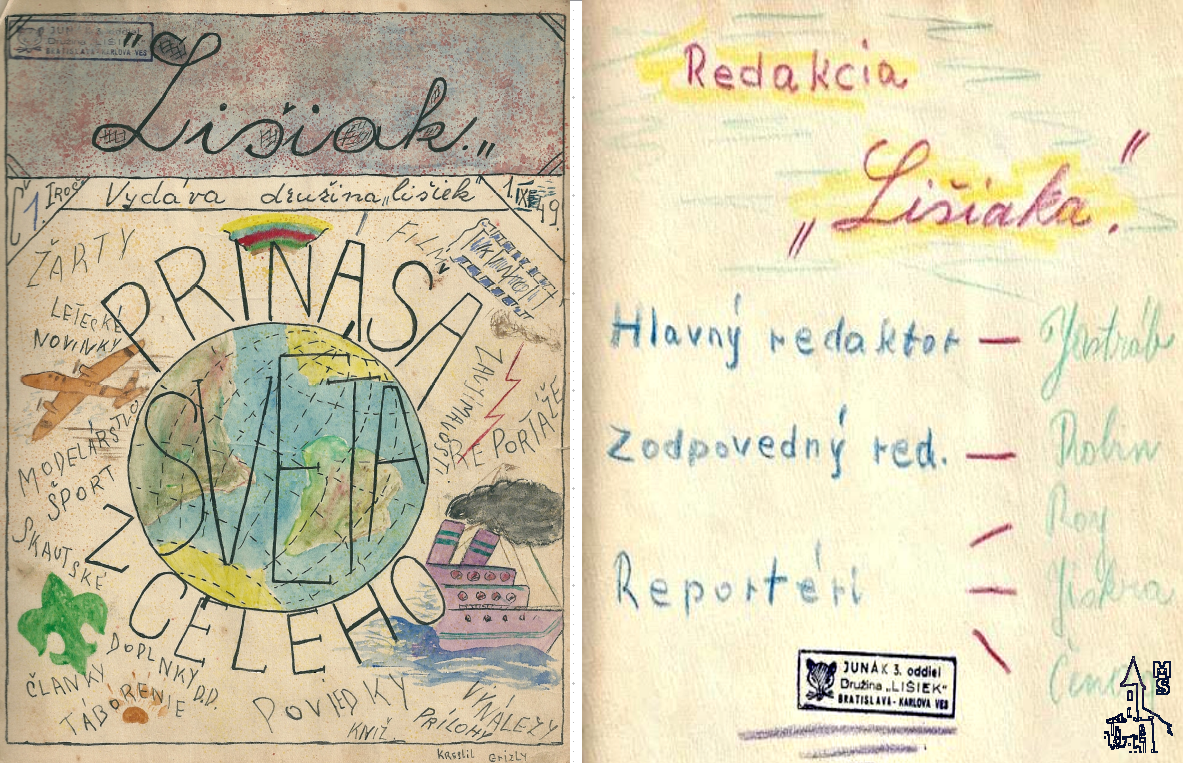 JUNÁK 3. oddiel
Družina „LIŠIEK"
BRATISLAVA - KARLOVA VES
„Lišiak."
Č 1. I. roč.
Vydáva družina „lišiek"
1. IX. 49.
PRINÁŠA
ZO CELÉHO
SVETA
ŽARTY
LETESKÉ
NOVINKY
MODELÁRSTVO
ŠPORT
SKAUTSKÉ
ČLANKY
DOPLNKY
TÁBORENIE
POVIEDKY
KNIŽ.
PRÍLOHY
VÝNALEZY
REPORTÁŽE
ZAUJÍMAVOSTI
FILM
KRESLIL GRIZLY
Redakcia
„Lišiaka."
Hlavný redaktor — Jastrab
Zodpovedný red. — Robin
Roy
Reportéri — Jiskra
JUNÁK 3. oddiel
Družina „LIŠIEK"
BRATISLAVA - KARLOVA VES
MS